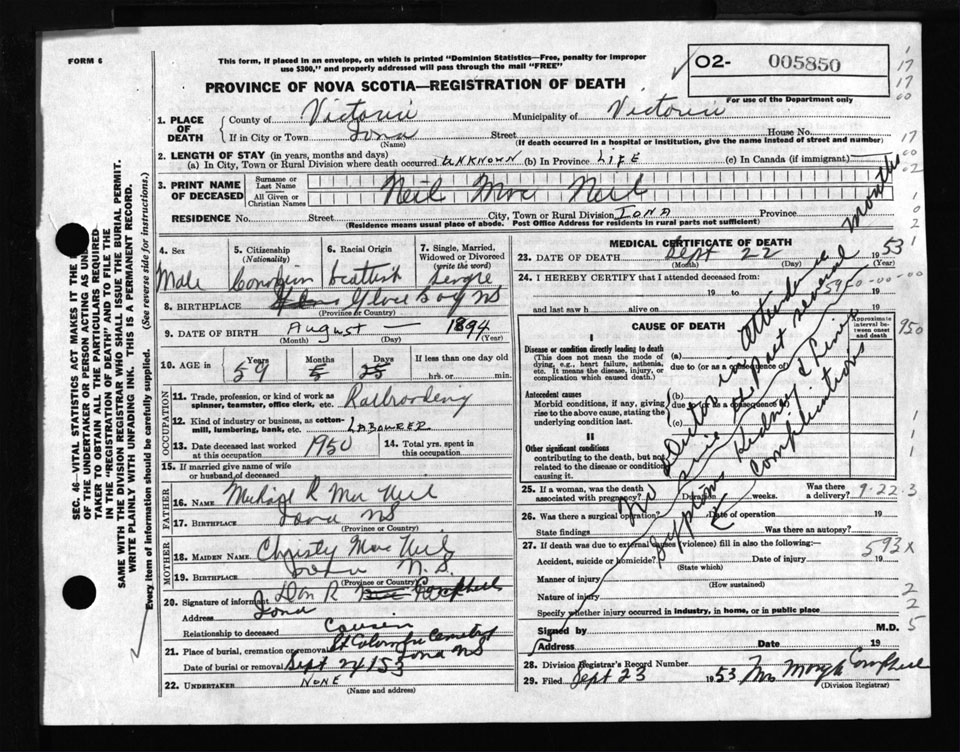 FORM 6
This form, if placed in an envelope, on which is printed "Dominion Statistics—Free, penalty for improper
use $300," and properly addressed will pass through the mail "FREE"
O2- 005850
PROVINCE OF NOVA SCOTIA—REGISTRATION OF DEATH
For use of the Department only
1. PLACE OF DEATH
County of Victoria Municipality of Victoria
If in City or Town Iona Street House No.
(Name) (If death occurred in a hospital or institution, give the name instead of street and number)
2. LENGTH OF STAY (in years, months and days)
(a) In City, Town or Rural Division where death occurred UNKNOWN (b) In Province LIFE (c) In Canada (if immigrant)
3. PRINT NAME OF DECEASED
Surname or Last Name
All Given or Christian Names
Neil Mac Neil
RESIDENCE No. Street City, Town or Rural Division IONA Province
(Residence means usual place of abode. Post Office Address for residents in rural parts not sufficient)
4. Sex Male
5. Citizenship (Nationality) Canadian
6. Racial Origin Scottish
7. Single, Married, Widowed or Divorced (write the word) Single
8. BIRTHPLACE Glace Bay NS
(Province or Country)
9. DATE OF BIRTH August — 1894
(Month) (Day) (Year)
10. AGE in Years Months Days If less than one day old
59 5 25 hrs. or min.
OCCUPATION
11. Trade, profession or kind of work as spinner, teamster, office clerk, etc. Railroading
12. Kind of industry or business, as cotton-mill, lumbering, bank, etc. LABOURER
13. Date deceased last worked at this occupation 1950
14. Total yrs. spent in this occupation
15. If married give name of wife or husband of deceased
FATHER
16. NAME Michael R Mac Neil
17. BIRTHPLACE Iona NS
(Province or Country)
MOTHER
18. MAIDEN NAME Christy Mac Neil
19. BIRTHPLACE Iona N.S.
(Province or Country)
20. Signature of informant Dan R Campbell
Address Iona
Relationship to deceased Cousin
21. Place of burial, cremation or removal St Columba Cemetery
Iona NS
Date of burial or removal Sept 24/53
22. UNDERTAKER NONE
(Name and address)
MEDICAL CERTIFICATE OF DEATH
23. DATE OF DEATH Sept 22 1953
(Month) (Day) (Year)
24. I HEREBY CERTIFY that I attended deceased from:
19 to 19
and last saw h alive on 19
CAUSE OF DEATH
Approximate interval between onset and death
I
Disease or condition directly leading to death
(This does not mean the mode of dying, e.g., heart failure, asthenia, etc. It means the disease, injury, or complication which caused death.)
(a)
due to (or as a consequence of)
Antecedent causes
Morbid conditions, if any, giving rise to the above cause, stating the underlying condition last.
(b)
due to (or as a consequence of)
(c)
II
Other significant conditions
contributing to the death, but not related to the disease or condition causing it.
No Doctor in attendance
since the past several months
Symptoms Kidney & Liver
Complications
25. If a woman, was the death associated with pregnancy? Duration weeks. Was there a delivery?
26. Was there a surgical operation? Date of operation
State findings Was there an autopsy?
27. If death was due to external causes (violence) fill in also the following:—
Accident, suicide or homicide? Date of injury 19
(State which)
Manner of injury
(How sustained)
Nature of injury
Specify whether injury occurred in industry, in home, or in public place
Signed by M.D.
Address Date 19
28. Division Registrar's Record Number
29. Filed Sept 23 1953 Campbell
(Division Registrar)
17
17
00
17
00
02
1
0
2
1
5950-00-00
950
1
1
1
9-22-3
593x
2
2
5
SEC. 46—VITAL STATISTICS ACT MAKES IT THE
OF THE UNDERTAKER OR PERSON ACTING AS UN
TAKER TO OBTAIN ALL THE PARTICULARS REQUIRED
IN THE "REGISTRATION OF DEATH" AND TO FILE THE
SAME WITH THE DIVISION REGISTRAR WHO SHALL ISSUE THE BURIAL PERMIT.
WRITE PLAINLY WITH UNFADING INK. THIS IS A PERMANENT RECORD.
Every item of information should be carefully supplied. (See reverse side for instructions.)